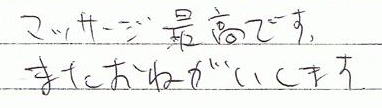 マッサージ最高です。
またおねがいします